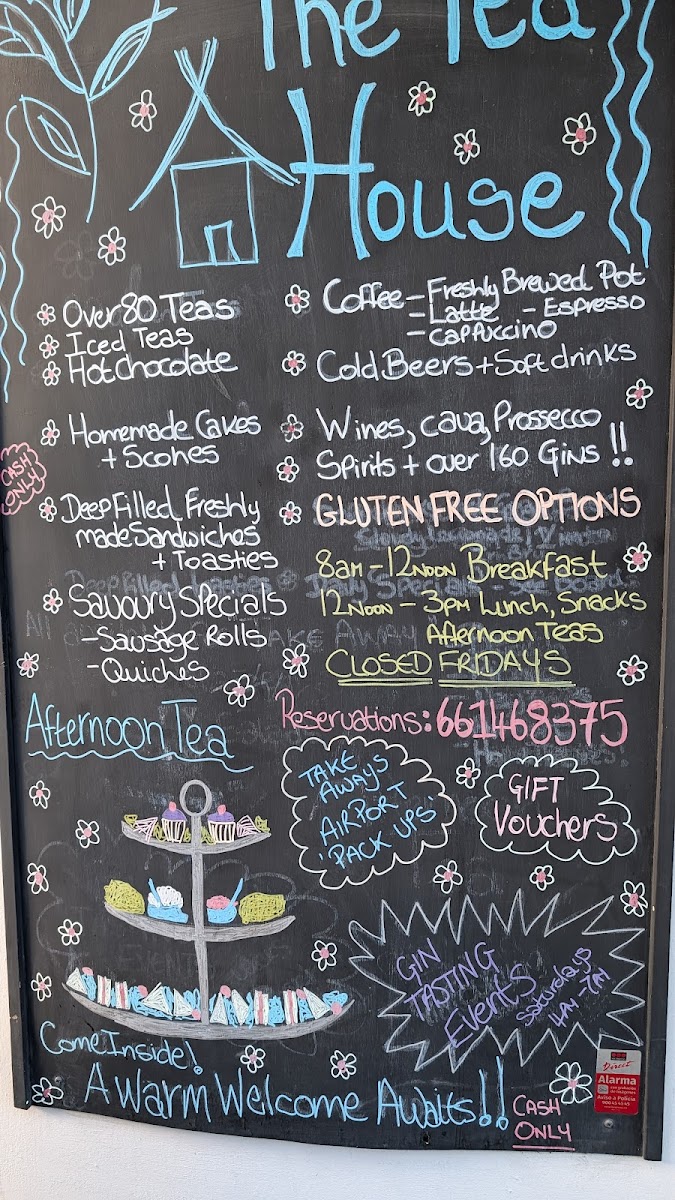 The Tea
House
Over 80 Teas
Iced Teas
Hot chocolate
Homemade Cakes
+ Scones
Deep filled Freshly
made Sandwiches
+ Toasties
Savoury Specials
- Sausage Rolls
- Quiches
CASH
ONLY
Coffee - Freshly Brewed Pot
- Latte - Espresso
- cappuccino
Cold Beers + Soft drinks
Wines, cava, Prossecco
Spirits + over 160 Gins !!
GLUTEN FREE OPTIONS
8am - 12noon Breakfast
12noon - 3pm Lunch, Snacks
Afternoon Teas
CLOSED FRIDAYS
Reservations: 661468375
Afternoon Tea
TAKE
AWAYS
AIRPORT
'PACK UPS'
GIFT
Vouchers
GIN
TASTING
Events
Saturdays
4PM - 7PM
Come Inside!
A Warm Welcome Awaits!!
CASH
ONLY
Direct
Alarma
Aviso a Policía